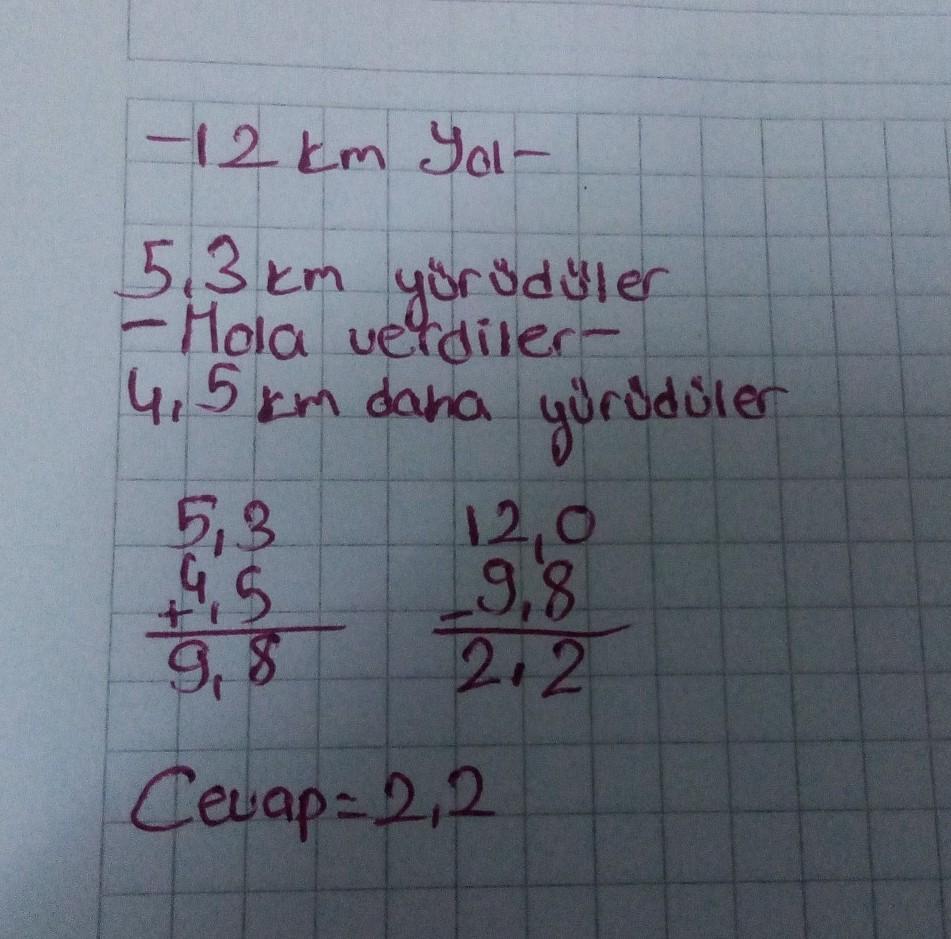 -12 km Yol-
5,3 km yürüdüler
-Mola verdiler-
4,5 km daha yürüdüler
5,3 12,0
+4,5 -9,8
9,8 2,2
Cevap=2,2